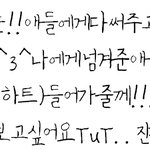 !!애들에게다써주고
^3^나에게넘겨준애
하트)들어가줄께!!!
보고싶어요TuT..쟌